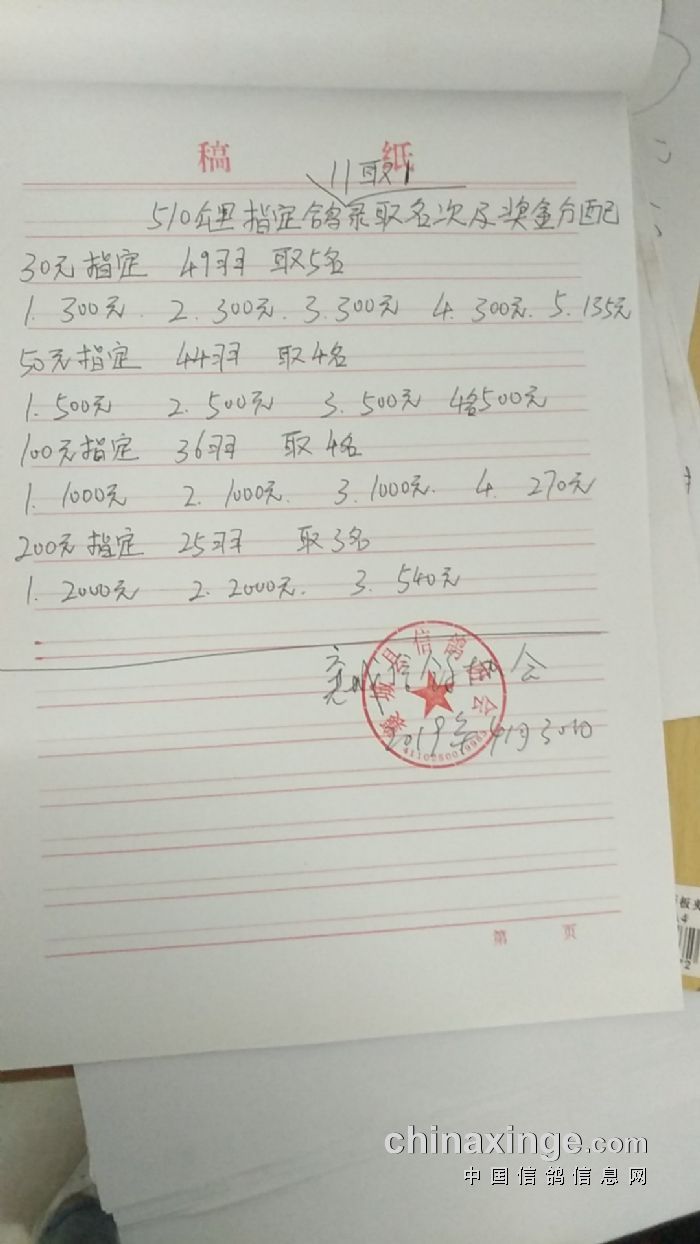 稿 纸
11取1
510公里指定鸽录取名次及奖金分配
30元指定 49羽 取5名
1. 300元. 2. 300元. 3. 300元 4. 300元. 5. 135元
50元指定 44羽 取4名
1. 500元 2. 500元 3. 500元 4名500元
100元指定 36羽 取4名
1. 1000元 2. 1000元. 3. 1000元. 4. 270元
200元指定 25羽 取3名
1. 2000元 2. 2000元. 3. 540元
襄城县信鸽协会
2019年4月30日
第 页
板夹
chinaxinge.com
中国信鸽信息网